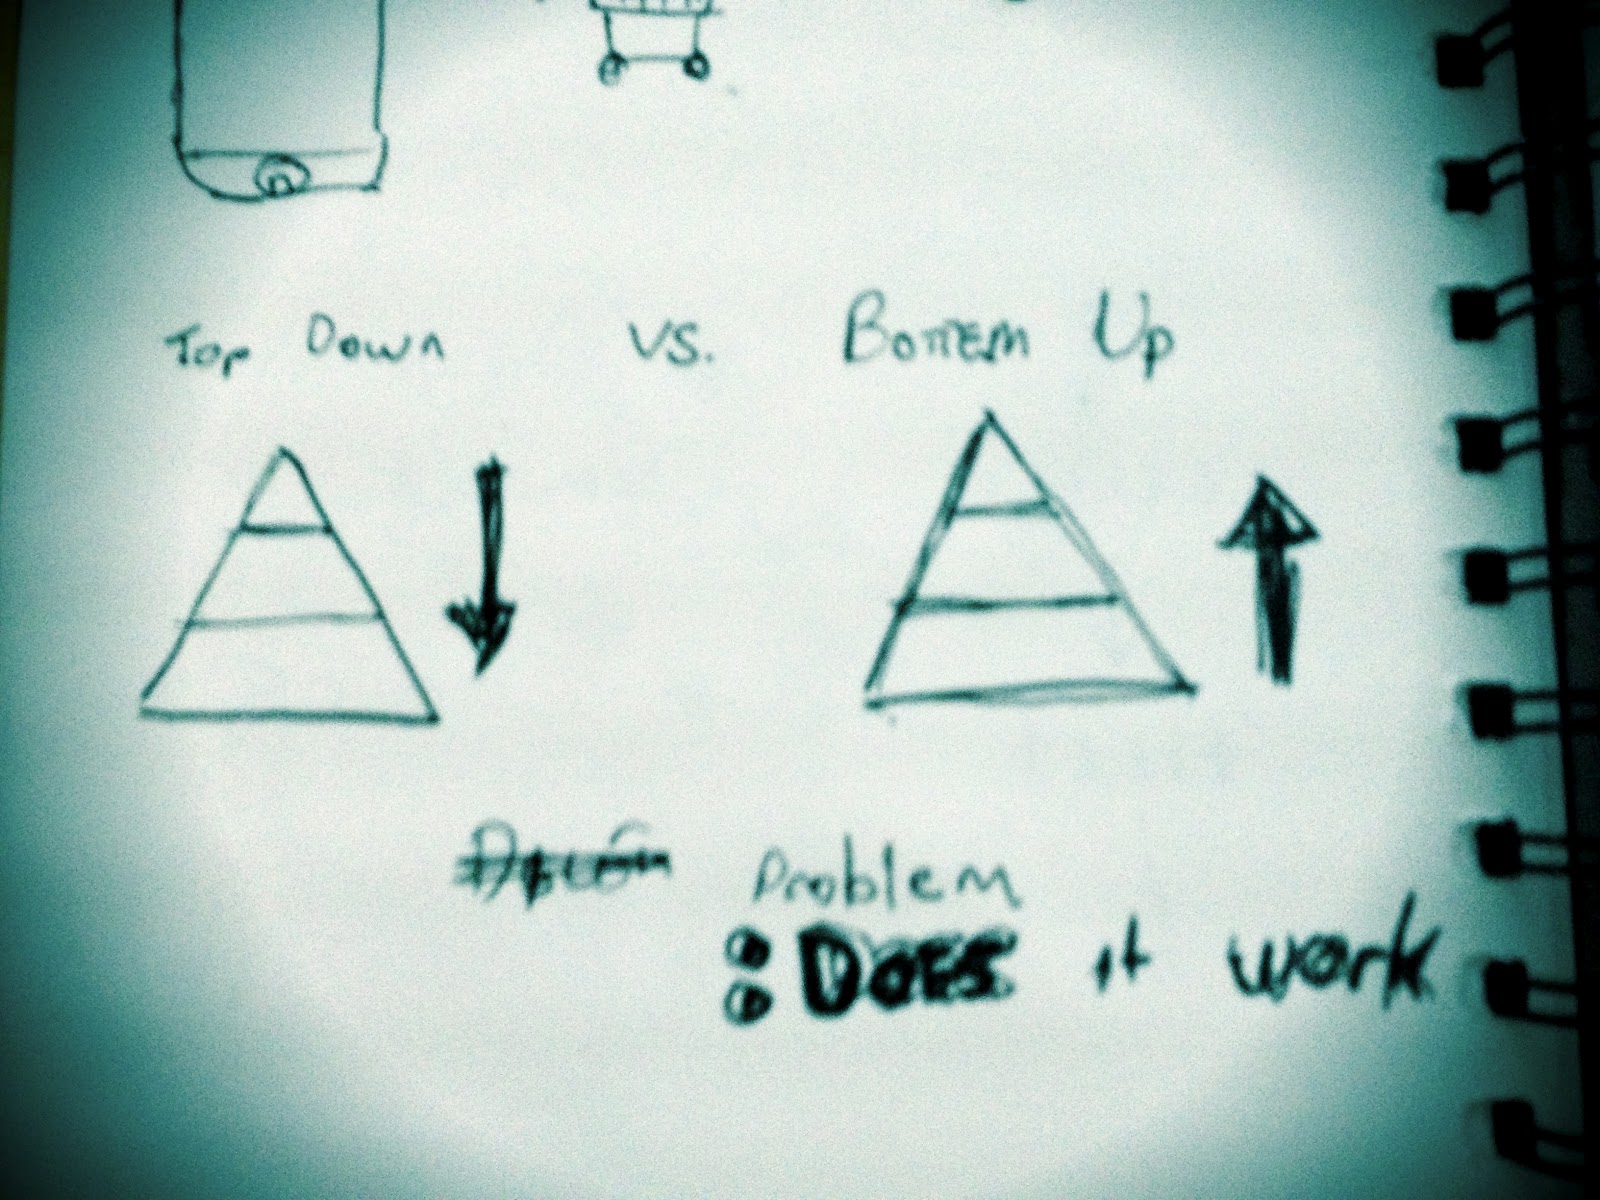 Top Down vs. Bottem Up
Problem
: Does it work